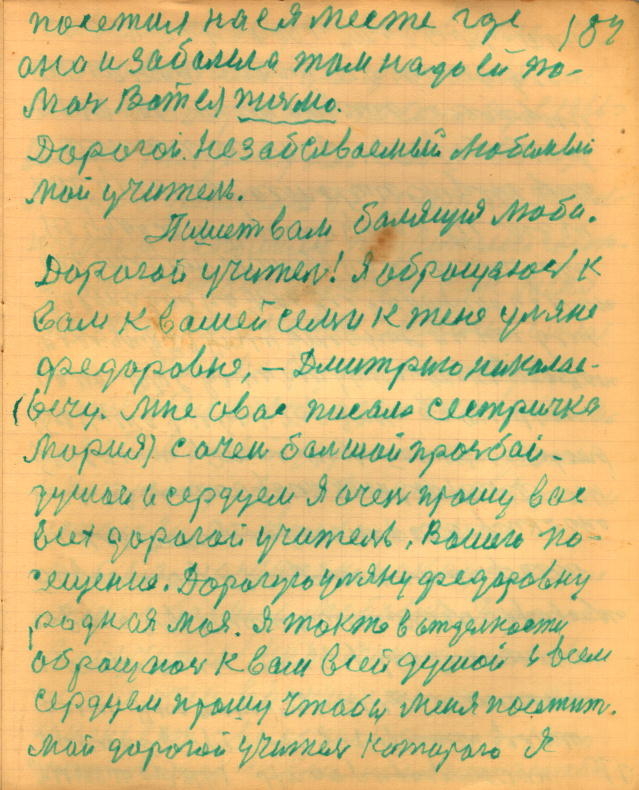 посетил нас я месте где 187
она и забалела там надо ей по-
моч Вотея писмо.
Дорогой. незабываемый любимый
мой учитель.
Пишет вам балящия люба.
Дорогой учител! Я обращаюся к
вам к вашей семи к жене уляне
федоровне, — Дмитрию николае-
(вечу. Мне овас писала сестричка
Мория) с очен балшой прозбай-
душой и сердцем Я очен прошу вас
всех дорогой учитель, Вашего по-
сещения. Дорогую уляну федоровну
родная моя. Я также в отделности
обращаюс к вам всей душой и всем
сердцем прошу чтобы меня посетит.
мой дорогой учител которого я